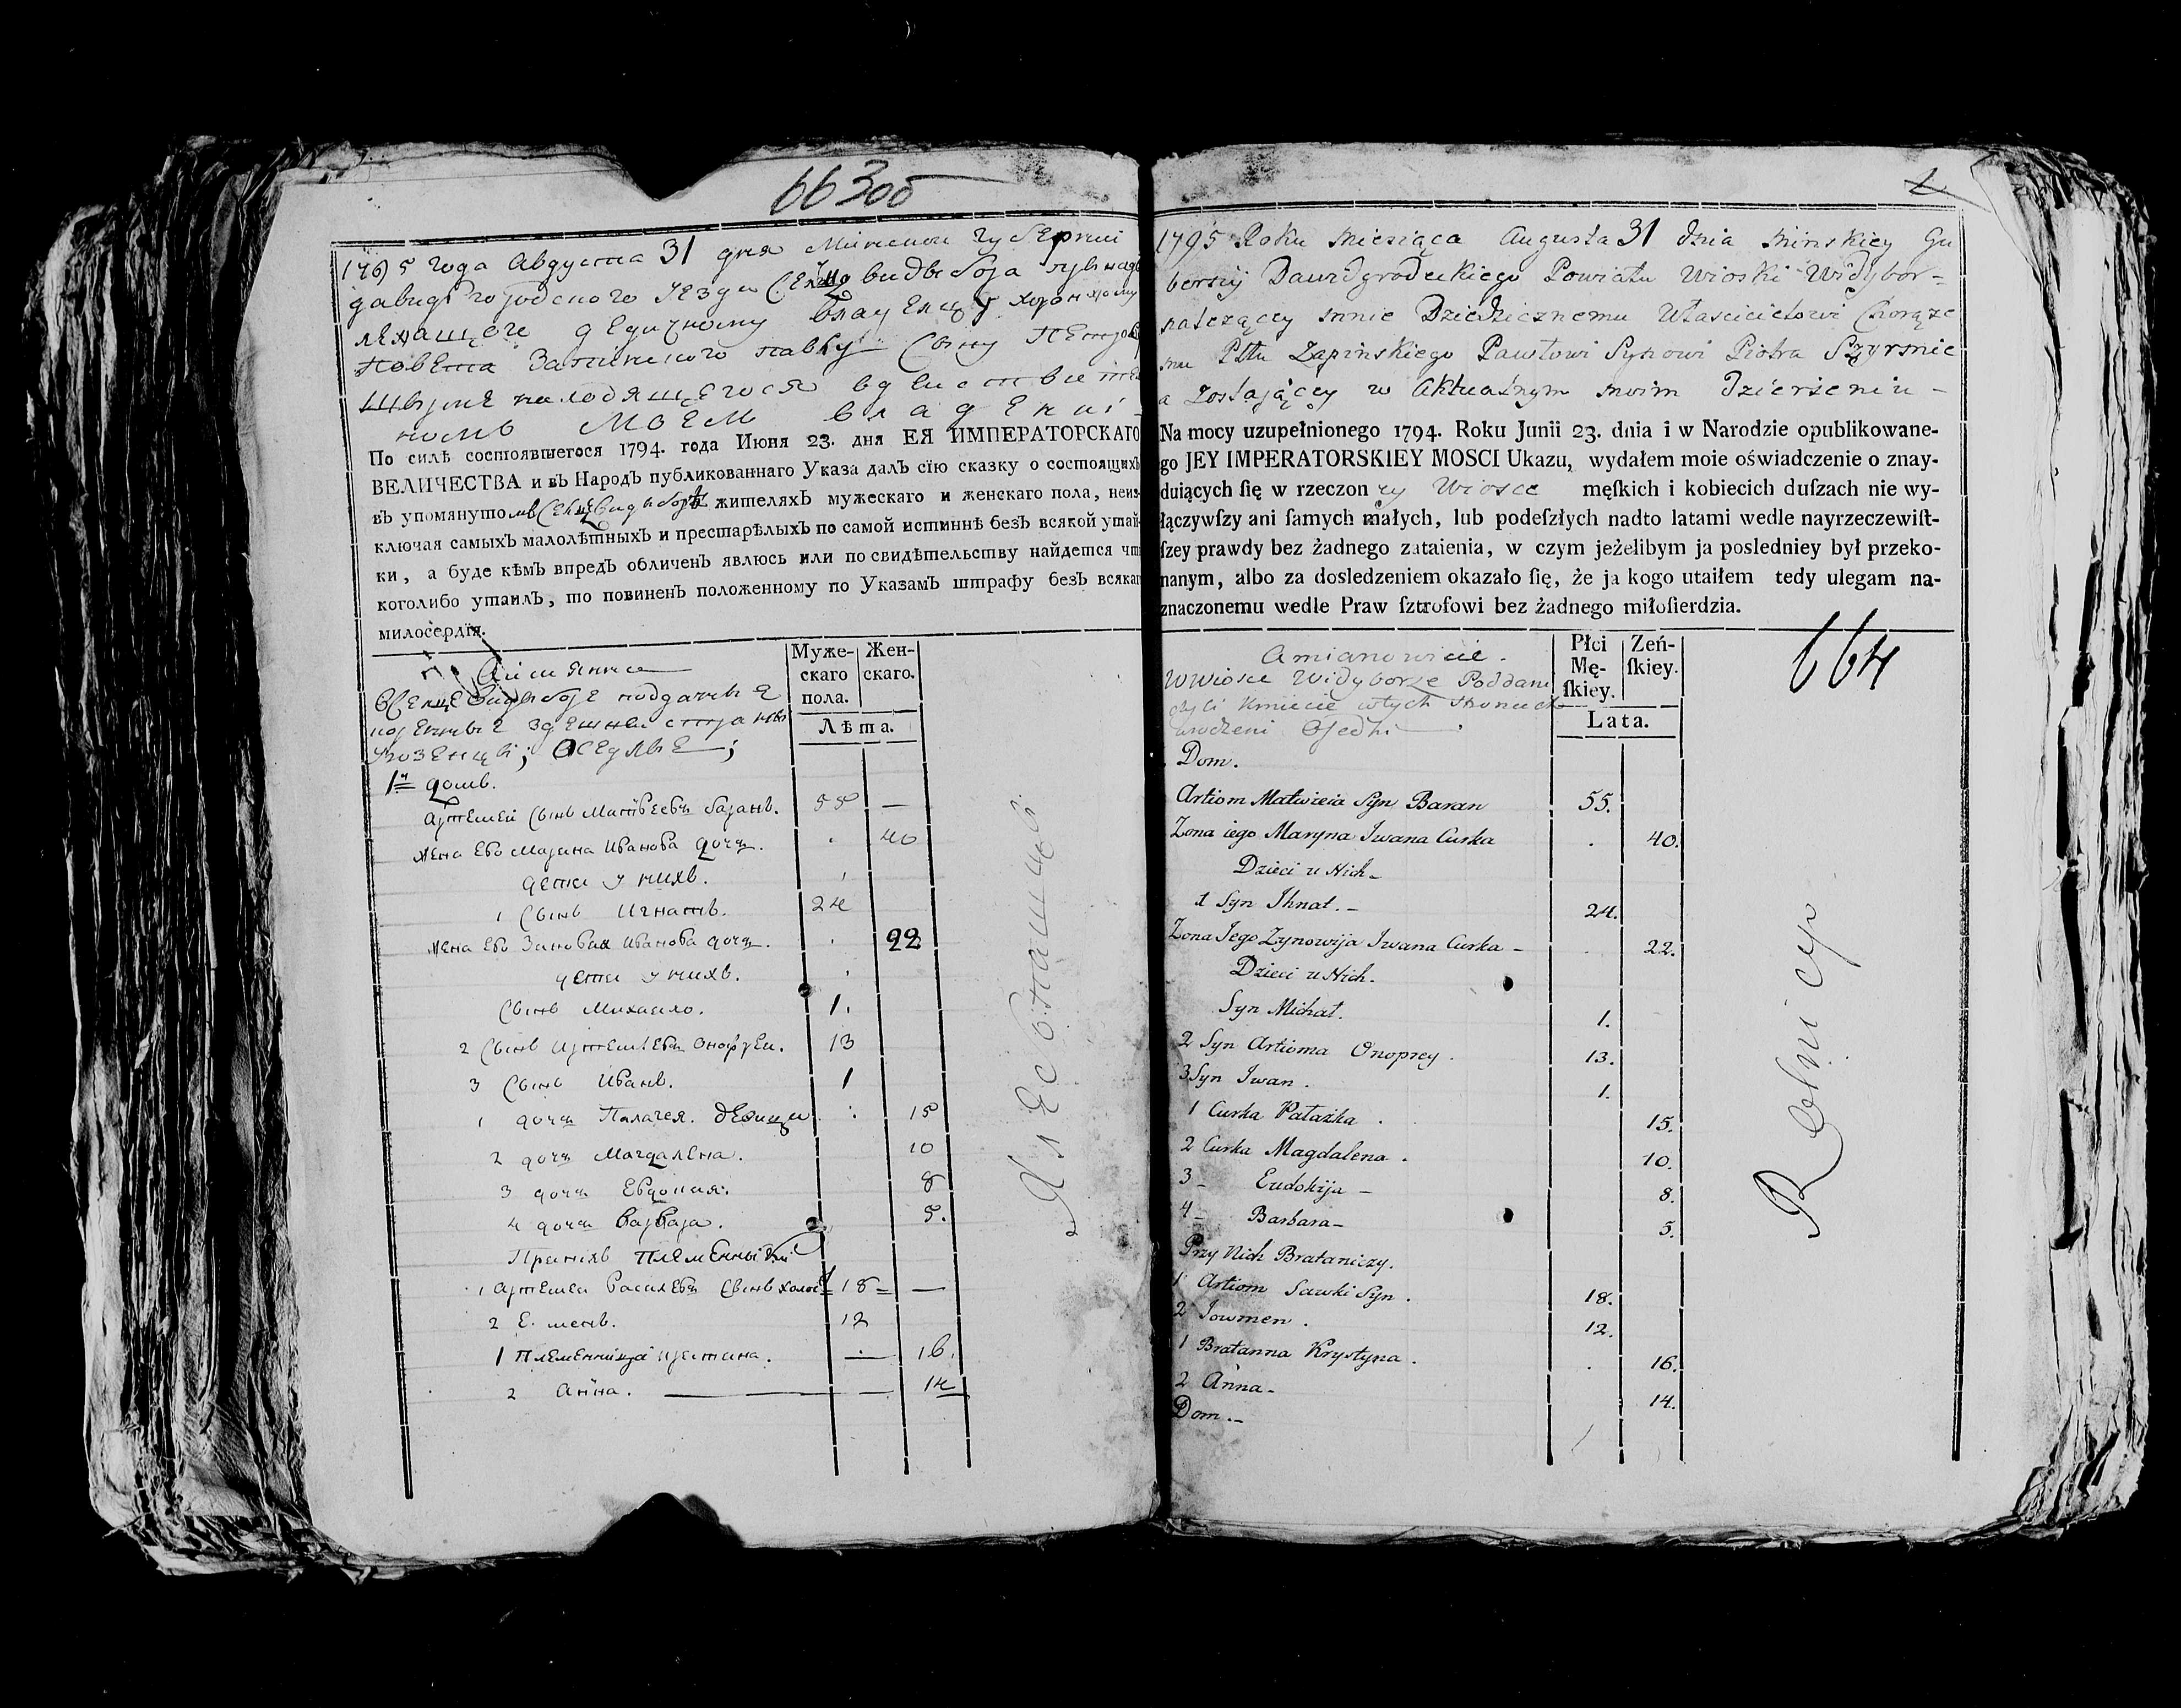 663об
1795 года Августа 31 дня Минской Губернии
Давидгородского уезда
лежащего дедичному владельцу хоронжому
повета Запинского Павлу сыну Петрова
Щырме находящегося в действител
номъ моем владении
По силѣ состоявшегося 1794. года Июня 23. дня ЕЯ ИМПЕРАТОРСКАГО
ВЕЛИЧЕСТВА и въ Народъ публикованнаго Указа далъ сїю сказку о состоящихъ
въ упомянутомъ жителяхъ мужескаго и женскаго пола, неиз-
ключая самыхъ малолѣтныхъ и престарѣлыхъ по самой истиннѣ безъ всякой утай-
ки, а буде кѣмъ впредь обличенъ явлюсь или по свидѣтельству найдется что
коголибо утаилъ, то повиненъ положенному по Указамъ штрафу безъ всякаго
милосердїя.
Муже-
скаго
пола.
Жен-
скаго.
Лѣта.
А имянно
подданные
здешних
уроженцы; оседлые;
1й домъ.
Артемей сынъ Матвеевъ Баранъ. 55 —
жена Ево Марина Иванова дочь. 40
дети у нихъ.
1 сынъ Игнатъ. 24
жена Ево Зиновия Иванова дочь. 22
дети у нихъ.
сынъ Михаило. 1.
2 сынъ Артемьевъ Онофрей. 13
3 сынъ Иванъ. 1
1 дочь Палагея. девица 15
2 дочь Магдалена. 10
3 дочь Евдокия. 8
4 дочь Варвара. 5.
При нихъ племенники
1 Артемей сынъ холост 18 —
2 12
1 племенница 16.
2 Анна. 14
Хлебопашцы
1795 Roku Miesiąca Augusta 31 dnia Minskiey Gu
bernij Dawidgrodeckiego Powiatu Wioski Widybor-
nalezącey mnie Dziedzicznemu Własicielowi Chorąze
mu Pttu Zapinskiego Pawłowi Synowi Piotra Szyrmie
a zostaiącey w Aktualnym moim Dzierżeniu -
Na mocy uzupełnionego 1794. Roku Junii 23. dnia i w Narodzie opublikowane-
go JEY IMPERATORSKIEY MOSCI Ukazu, wydałem moie oświadczenie o znay-
duiących ſię w rzeczoney Wiosce męſkich i kobiecich duſzach nie wy-
łączywſzy ani ſamych małych, lub podeſzłych nadto latami wedle nayrzeczewiſt-
ſzey prawdy bez żadnego zataienia, w czym jeżelibym ja posledniey był przeko-
nanym, albo za dosledzeniem okazało ſię, że ja kogo utaiłem tedy ulegam na-
znaczonemu wedle Praw ſztrofowi bez żadnego miłoſierdzia.
Płci
Mę-
ſkiey.
Zeń-
ſkiey.
Lata.
664
Amianowicie.
W Wiosce Widyborze Poddani
czyli Kmiecie wtych Stronach
urodzeni Osiedli
Dom.
Artiom Matwieia Syn Baran 55.
Zona iego Maryna Iwana Curka 40.
Dzieci u Nich-
1 Syn Ihnat.- 24.
Zona Iego Zynowija Iwana Curka - 22.
Dzieci u Nich.
Syn Michał. 1.
2 Syn Artioma Onoprey. 13.
3 Syn Iwan. 1.
1 Curka Pałażka. 15.
2 Curka Magdalena. 10.
3- Eudokija - 8.
4- Barbara- 5.
Przy Nich Brataniczy.
1 Artiom Sawki Syn. 18.
2 Iowmen. 12.
1 Bratanna Krystyna. 16.
2 Anna- 14.
Dom.-
Rolnicy